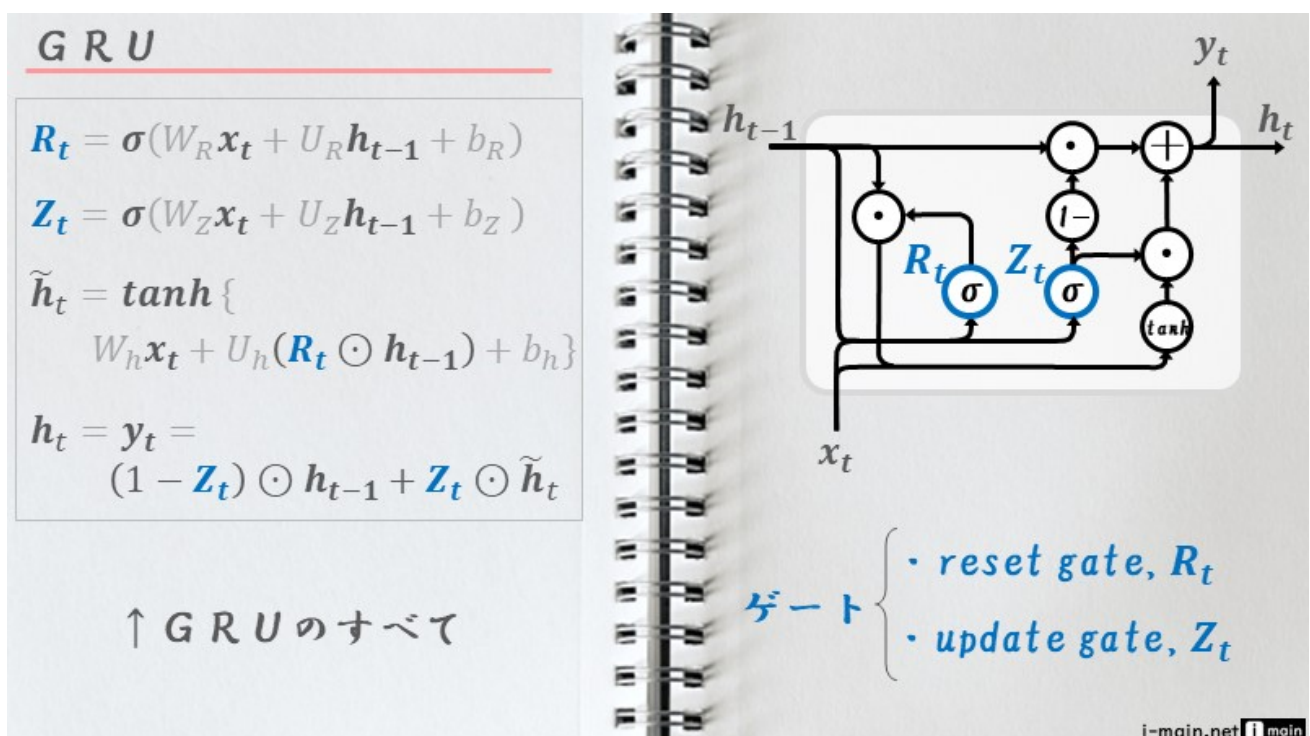 GRU
R_t = σ(W_R x_t + U_R h_{t−1} + b_R)
Z_t = σ(W_Z x_t + U_Z h_{t−1} + b_Z )
h̃_t = tanh {
W_h x_t + U_h(R_t ⊙ h_{t−1}) + b_h}
h_t = y_t =
(1 − Z_t) ⊙ h_{t−1} + Z_t ⊙ h̃_t
↑GRUのすべて
y_t
h_{t−1}
h_t
+
1-
R_t
Z_t
σ
σ
tanh
x_t
ゲート
・reset gate, R_t
・update gate, Z_t
i-main.net i main